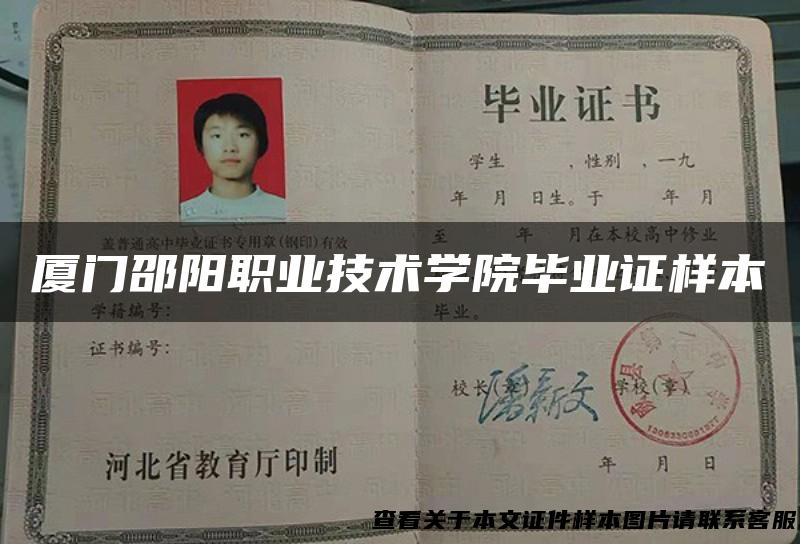 毕业证书
学生 ，性别 ，一九
年 月 日生。于 年 月
至 年 月在本校高中修业
盖普通高中毕业证书专用章(钢印)有效
厦门邵阳职业技术学院毕业证样本
毕业。
学籍编号：
证书编号：
校长(章)
学校(章)
河北省教育厅印制
年 月 日
查看关于本文证件样本图片请联系客服